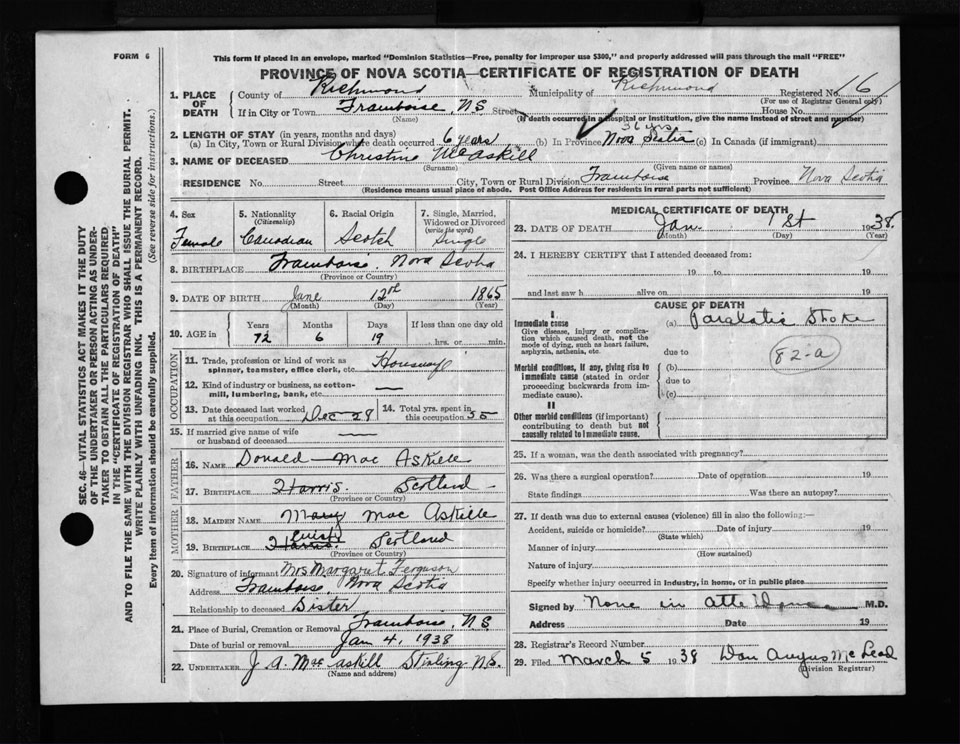 FORM 6
This form if placed in an envelope, marked "Dominion Statistics—Free, penalty for improper use $300," and properly addressed will pass through the mail "FREE"
PROVINCE OF NOVA SCOTIA—CERTIFICATE OF REGISTRATION OF DEATH
1. PLACE OF DEATH County of Richmond Municipality of Richmond Registered No. 16
(For use of Registrar General only)
If in City or Town Framboise, N.S. Street House No.
(Name) (If death occurred in a hospital or institution, give the name instead of street and number)
2. LENGTH OF STAY (in years, months and days)
(a) In City, Town or Rural Division where death occurred 6 years (b) In Province 36 yrs Nova Scotia (c) In Canada (if immigrant)
3. NAME OF DECEASED Christine McAskill
(Surname) (Given name or names)
RESIDENCE No. Street City, Town or Rural Division Framboise Province Nova Scotia
(Residence means usual place of abode. Post Office Address for residents in rural parts not sufficient)
4. Sex Female
5. Nationality (Citizenship) Canadian
6. Racial Origin Scotch
7. Single, Married, Widowed or Divorced (write the word) Single
8. BIRTHPLACE Framboise, Nova Scotia
(Province or Country)
9. DATE OF BIRTH June 12 1865
(Month) (Day) (Year)
10. AGE in Years 72 Months 6 Days 19 If less than one day old hrs. or min.
OCCUPATION
11. Trade, profession or kind of work as spinner, teamster, office clerk, etc.
12. Kind of industry or business, as cotton-mill, lumbering, bank, etc. —
13. Date deceased last worked at this occupation Dec—28
14. Total yrs. spent in this occupation 35
15. If married give name of wife or husband of deceased —
FATHER
16. NAME Donald—MacAskill
17. BIRTHPLACE Harris. Scotland—
(Province or Country)
MOTHER
18. MAIDEN NAME Mary MacAskill
19. BIRTHPLACE Harris. Scotland
(Province or Country)
20. Signature of informant Mrs Margaret Ferguson
Address Framboise, Nova Scotia
Relationship to deceased Sister
21. Place of Burial, Cremation or Removal Framboise, N.S.
Date of burial or removal Jan 4, 1938
22. UNDERTAKER J. A. Macaskill Stirling N.S.
(Name and address)
MEDICAL CERTIFICATE OF DEATH
23. DATE OF DEATH Jan. 1st 1938.
(Month) (Day) (Year)
24. I HEREBY CERTIFY that I attended deceased from:
19 to 19
and last saw h alive on 19
CAUSE OF DEATH
I.
Immediate cause (a) Paralatic Stroke
Give disease, injury or complication which caused death, not the mode of dying, such as heart failure, asphyxia, asthenia, etc.
due to
82-a
Morbid conditions, if any, giving rise to immediate cause (stated in order proceeding backwards from immediate cause).
(b)
due to
(c)
II
Other morbid conditions (if important) contributing to death but not causally related to immediate cause.
25. If a woman, was the death associated with pregnancy?
26. Was there a surgical operation? Date of operation 19
State findings Was there an autopsy?
27. If death was due to external causes (violence) fill in also the following:—
Accident, suicide or homicide? Date of injury 19
(State which)
Manner of injury
(How sustained)
Nature of injury
Specify whether injury occurred in industry, in home, or in public place
Signed by None in M.D.
Address Date 19
28. Registrar's Record Number
29. Filed March 5 1938 Dan Angus McLeod
(Division Registrar)
SEC. 46—VITAL STATISTICS ACT MAKES IT THE DUTY
OF THE UNDERTAKER OR PERSON ACTING AS UNDER-
TAKER TO OBTAIN ALL THE PARTICULARS REQUIRED
IN THE "CERTIFICATE OF REGISTRATION OF DEATH"
AND TO FILE THE SAME WITH THE DIVISION REGISTRAR WHO SHALL ISSUE THE BURIAL PERMIT.
WRITE PLAINLY WITH UNFADING INK. THIS IS A PERMANENT RECORD.
Every item of information should be carefully supplied. (See reverse side for instructions.)